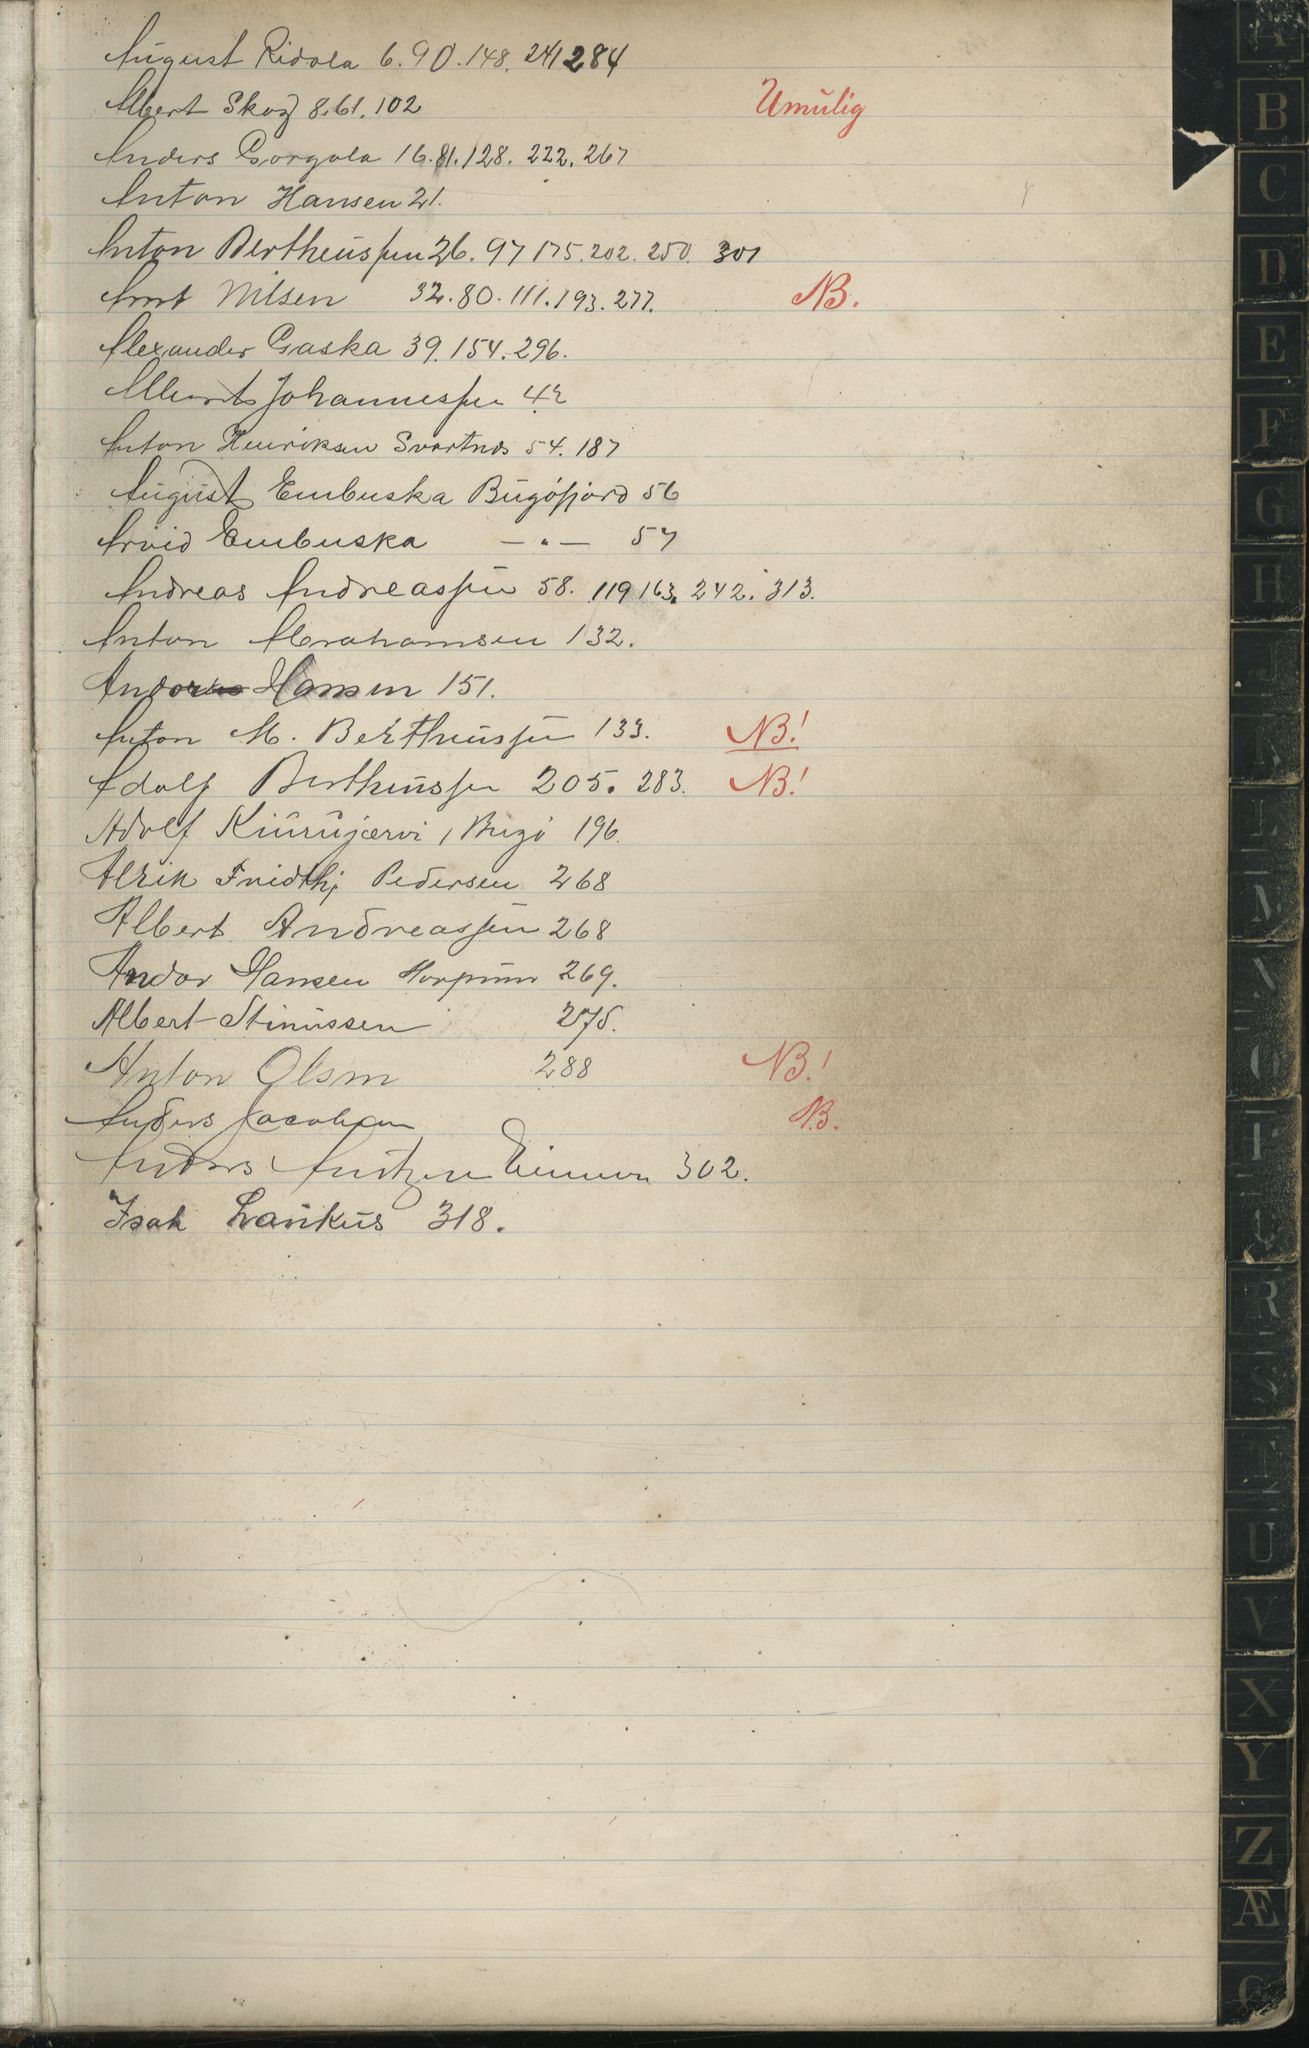 August Ridola 6. 90. 148. 241 284
Albert Skog 8. 61. 102 Umulig
Anders Gorgola 16. 81. 128. 222. 267
Anton Hansen 21.
Anton Bertheussen 26. 97 175. 202. 250. 301
Arnt Nilsen 32. 80. 111. 193. 277. NB.
Alexander Gaska 39. 154. 296.
Albert Johannessen 42
Anton Henriksen Svartnes 54. 187
August Embuska Bugøfjord 56
Arvid Embuska — " — 57
Andreas Andreassen 58. 119 163. 242. 313.
Anton Abrahamsen 132.
Andor Hansen 151.
Anton M. Bertheussen 133. NB!
Adolf Bertheussen 205. 283. NB!
Adolf Kiurujærvi, Bugø 196.
Alrik Fridthj. Pedersen 268
Albert Andreassen 268
Andor Hansen 269.
Albert Stinussen 275.
Anton Olsen 288 NB!
Anders Jacobsen NB.
Anders 302.
Isak Laukus 318.
A
B
C
D
E
F
G
H
J
K
L
M
N
O
P
Q
R
S
T
U
V
X
Y
Z
Æ